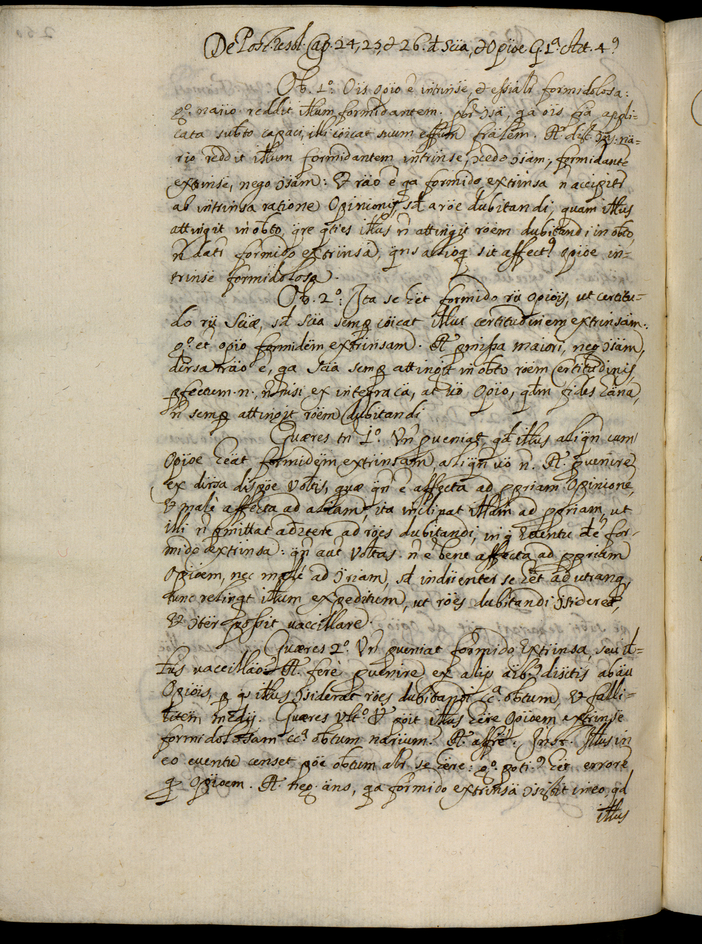 De Post. resol. Cap. 24, 25, & 26. d Scia, & Opioe Q. 1ª Art. 4º
Ob. 1º: Ois opio ē intrinse, & essialr formidolosa:
gº. naiio reddit itlum formidantem. pbr 9sa, qa ois cā appli-
cata subto capaci, illi cöicat suum effum fralem. R. dist. 9s. na-
rio reddit itlum formidantem intrinse, 9cedo 9sam, formidantē
extrinse, nego 9sam: & rāo ē qa formido extrinsa ñ accipitr
ab intrinsa ratione Opinionis sd a röe dubitandi, quam itlus
attingit in obto, qre qties itlus ñ attingit röem dubitandi in obto,
ñ datr formido extrinsa, qns alioq sit affectº opioe in-
trinse formidolosa.
Ob. 2º: Ita se het formido rū opiois, ut certitu-
do rū Sciæ, sd scia semp cöicat itlui certitudinem extrinsam:
gº. et opio formidem extrinsam. R. pmissa maiori, neg. 9sam,
dirsa rāo ē, qa Scia semp attingit in obto röem certitudinis
pfectum. n. ñ nisi ex integra cā, at uo opio, qtm fides hāna,
ñ semp attingit röem dubitandi.
Quæres tn 1º. Vñ pueniat, qd itlus aliqn cum
Opioe heat formidem extrinsam, aliqn uo ñ. R. puenire
ex dirsa dispöe voltis, quæ qn ē affecta ad ppriam Opinionē,
& male affecta ad aliam, ita inclinat itlum ad ppriam, ut
illi ñ pmittat aduertere ad röes dubitandi, in q euentu deē for-
mido extrinsa: qn aut voltas ñ ē bene affecta ad ppriam
Opioem, nec male ad 9riam, sd indiienter se het ad utranq,
tunc relinqt itlum expeditum, ut röes dubitandi 9sideret,
& iter possit vaccillare.
Quæres 2º. Vñ pueniat formido extrinsa, seu it-
lus vaccillāo? R. fere puenire ex aliis dibus disitis abāu
Opiois, p q itlus 9siderat röes dubitandi cca obtum, & falli-
litem medij. Quæres vltº. & poit itlus here Opioem extrinse
formidolosam cca obtum narium. R. affre. Inst. Itlus in
eo euentu censet pöe obtum alr se here: gº. potiº het errorē
q Opioem. R. neg. ans, qa formido extrinsa 9sistit in eo, qd
itlus